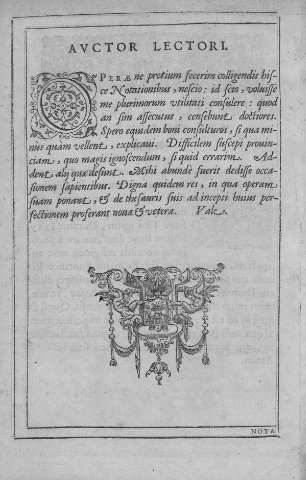 AVCTOR LECTORI.
OPERÆne pretium fecerim colligendis his-
ce Notationibus, nescio: id scio, voluisse
me plurimorum vtilitati consulere: quod
an sim assecutus, censebunt doctiores.
Spero equidem boni consulturos, si qua mi-
nus quàm vellent, explicaui. Difficilem suscepi prouin-
ciam, quo magis ignoscendum, si quid erratum. Ad-
dent alij quæ desunt. Mihi abundè fuerit dedisse occa-
sionem sapientibus. Digna quidem res, in qua operam
suam ponant, & de thesauris suis ad incepti huius per-
fectionem proferant noua & vetera. Vale.
NOTA